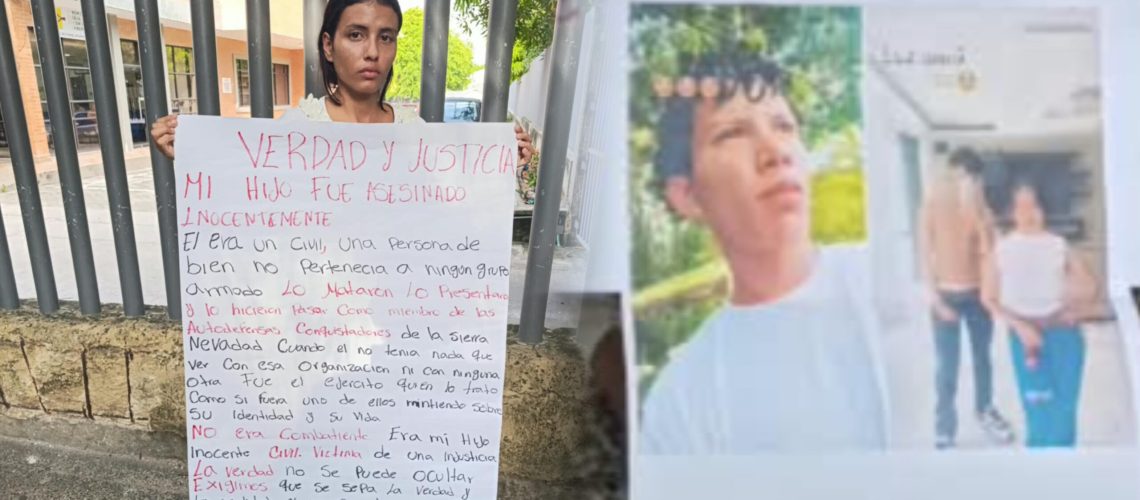 VERDAD Y JUSTICIA
MI HIJO FUE ASESINADO
INOCENTEMENTE
El era un Civil, Una Persona de
bien no Pertenecia a ningún grupo
armado Lo Mataron lo Presentaro
y lo hicieron Pasar Como miembro de las
Autodefensas Conquistadores de la sierra
Nevadad Cuando el no tenia nada que
ver Con esa Organización ni con ninguna
otra Fue el ejercito quien lo trato
Como si fuera uno de ellos mintiendo sobre
su Identidad y su Vida
No era Combatiente Era mi Hijo
Inocente Civil. Victima de una Injusticia
La verdad no se Puede Ocultar
Exigimos que se sepa La verdad y